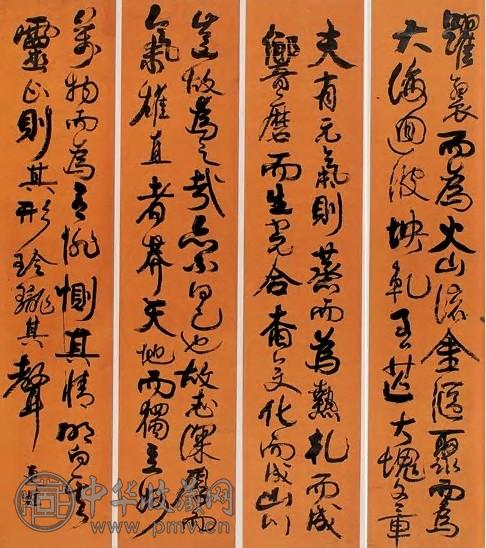 躍裂而為火山流金滙聚而為
大海迴波坱軋大塊文章
夫有元氣則蒸而為熱軋而成
響磨而生光合沓變化而成山川
豈故為之哉亦不得已也故志深厚而
氣雄直者莽天地而獨立
萬物而為言悱惻其情明白其
靈正則其形玲瓏其聲
中华收藏网
www.pmw.cn